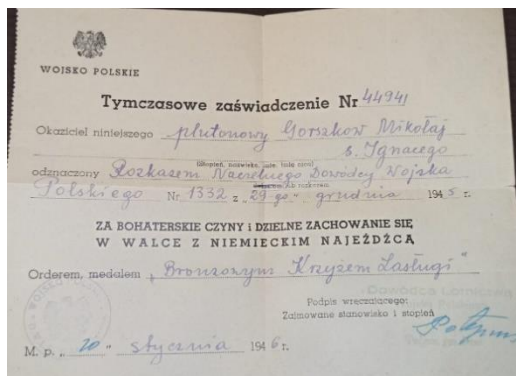 WOJSKO POLSKIE
Tymczasowe zaświadczenie Nr 44941
Okaziciel niniejszego plutonowy Gorszkow Mikołaj
s. Ignacego
odznaczony Rozkazem Naczelnego Dowódcy Wojska
Polskiego Nr 1332 z "29-go" grudnia 1945 r.
ZA BOHATERSKIE CZYNY i DZIELNE ZACHOWANIE SIĘ
W WALCE Z NIEMIECKIM NAJEŹDŹCĄ
Orderem, medalem „Bronzowym Krzyżem Zasługi"
Dowódca Lotnictwa
Podpis wręczającego:
Zajmowane stanowisko i stopień
M. p. „20" stycznia 1946 r.